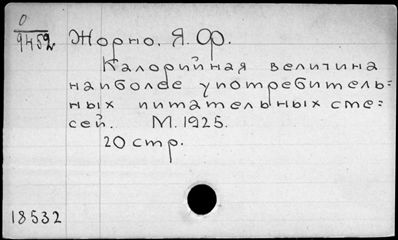 0
9452.
Жорно, Я. Ф.
Калорийная величина
наиболее употребитель=
ных питательных сме=
сей. М. 1925.
20 стр.
18532